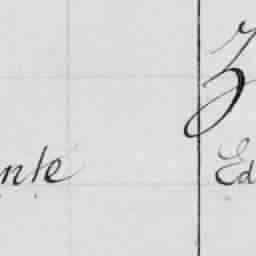 nte Ed